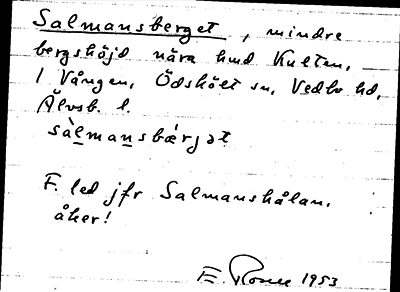 Salmansberget, mindre
bergshöjd nära hmd Kulten,
1 Vången, Ödskölt sn, Vedbo hd,
Älvsb. l.
sàlmansbærjət
F. led jfr Salmanshålan,
åker!
E. Rosell 1953